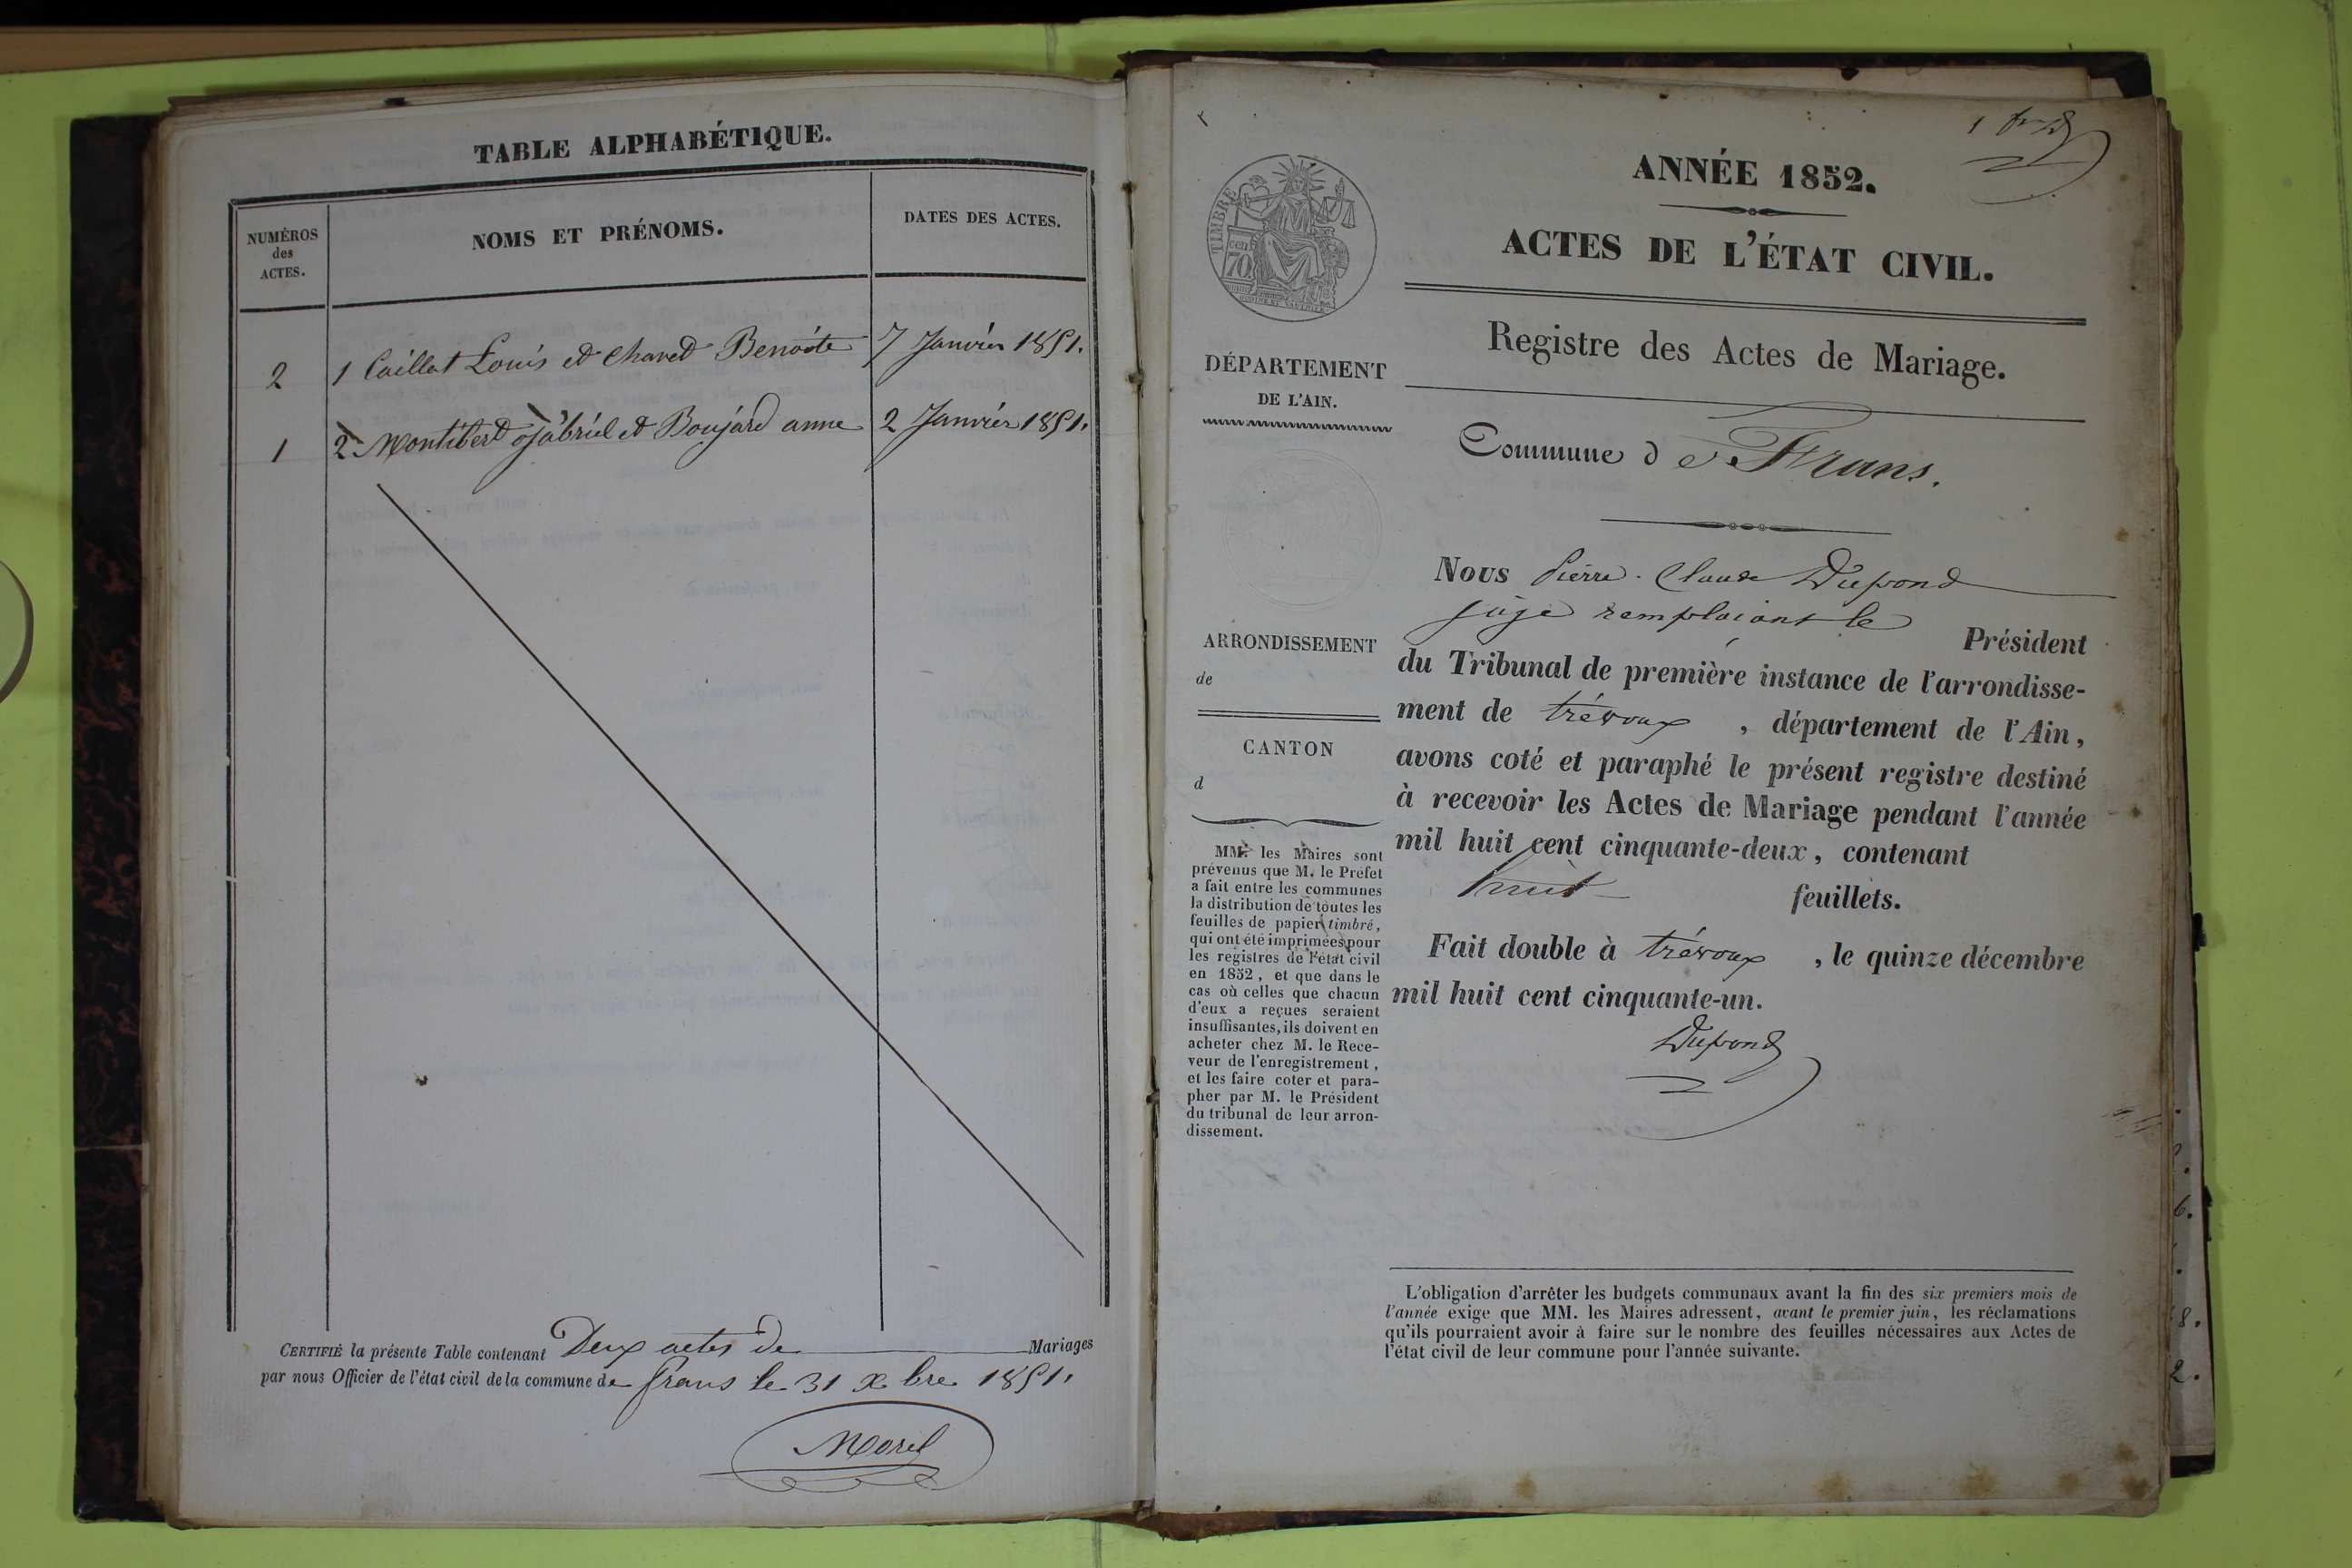 TABLE ALPHABÉTIQUE.
NUMÉROS
des
ACTES.
NOMS ET PRÉNOMS.
DATES DES ACTES.
2 1 Caillat Louis et Chaned Benoîte 7 Janvier 1851.
1 2 Montibert Gabriel et Boujard anne 2 Janvier 1851.
CERTIFIÉ la présente Table contenant Deux actes de Mariages
par nous Officier de l'état civil de la commune de frans le 31 xbre 1851.
Morel
1
TIMBRE
70 cen
ANNÉE 1852.
ACTES DE L'ÉTAT CIVIL.
Registre des Actes de Mariage.
DÉPARTEMENT
DE L'AIN.
Commune de Frans.
Nous Pierre. Claude Dupond
juge remplaiant le Président
du Tribunal de première instance de l'arrondisse-
ment de trévoux, département de l'Ain,
avons coté et paraphé le présent registre destiné
à recevoir les Actes de Mariage pendant l'année
mil huit cent cinquante-deux, contenant
huit feuillets.
Fait double à trévoux, le quinze décembre
mil huit cent cinquante-un.
Dupond
ARRONDISSEMENT
de
CANTON
d
MM. les Maires sont
prévenus que M. le Préfet
a fait entre les communes
la distribution de toutes les
feuilles de papier timbré,
qui ont été imprimées pour
les registres de l'état civil
en 1852, et que dans le
cas où celles que chacun
d'eux a reçues seraient
insuffisantes, ils doivent en
acheter chez M. le Rece-
veur de l'enregistrement,
et les faire coter et para-
pher par M. le Président
du tribunal de leur arron-
dissement.
L'obligation d'arrêter les budgets communaux avant la fin des six premiers mois de
l'année exige que MM. les Maires adressent, avant le premier juin, les réclamations
qu'ils pourraient avoir à faire sur le nombre des feuilles nécessaires aux Actes de
l'état civil de leur commune pour l'année suivante.